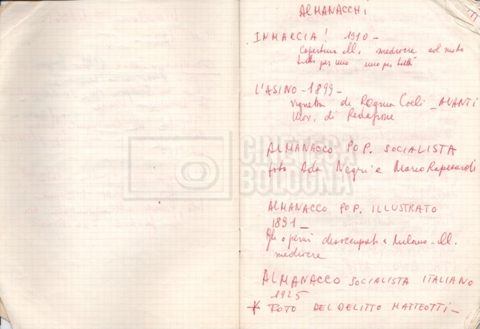 ALMANACCHI
IN MARCIA! 1910 -
Copertina ill. mediocre col motto
tutti per uno uno per tutti
L'ASINO - 1899 -
vignetta di Regina Coeli - AVANTI
ALMANACCO POP. SOCIALISTA
foto Ada Negri e Mario Rapisardi
ALMANACCO POP. ILLUSTRATO
1891 -
Gli operai disoccupati a Milano - ill.
mediocre
ALMANACCO SOCIALISTA ITALIANO
1925
* FOTO DEL DELITTO MATTEOTTI -
CINETECA
BOLOGNA